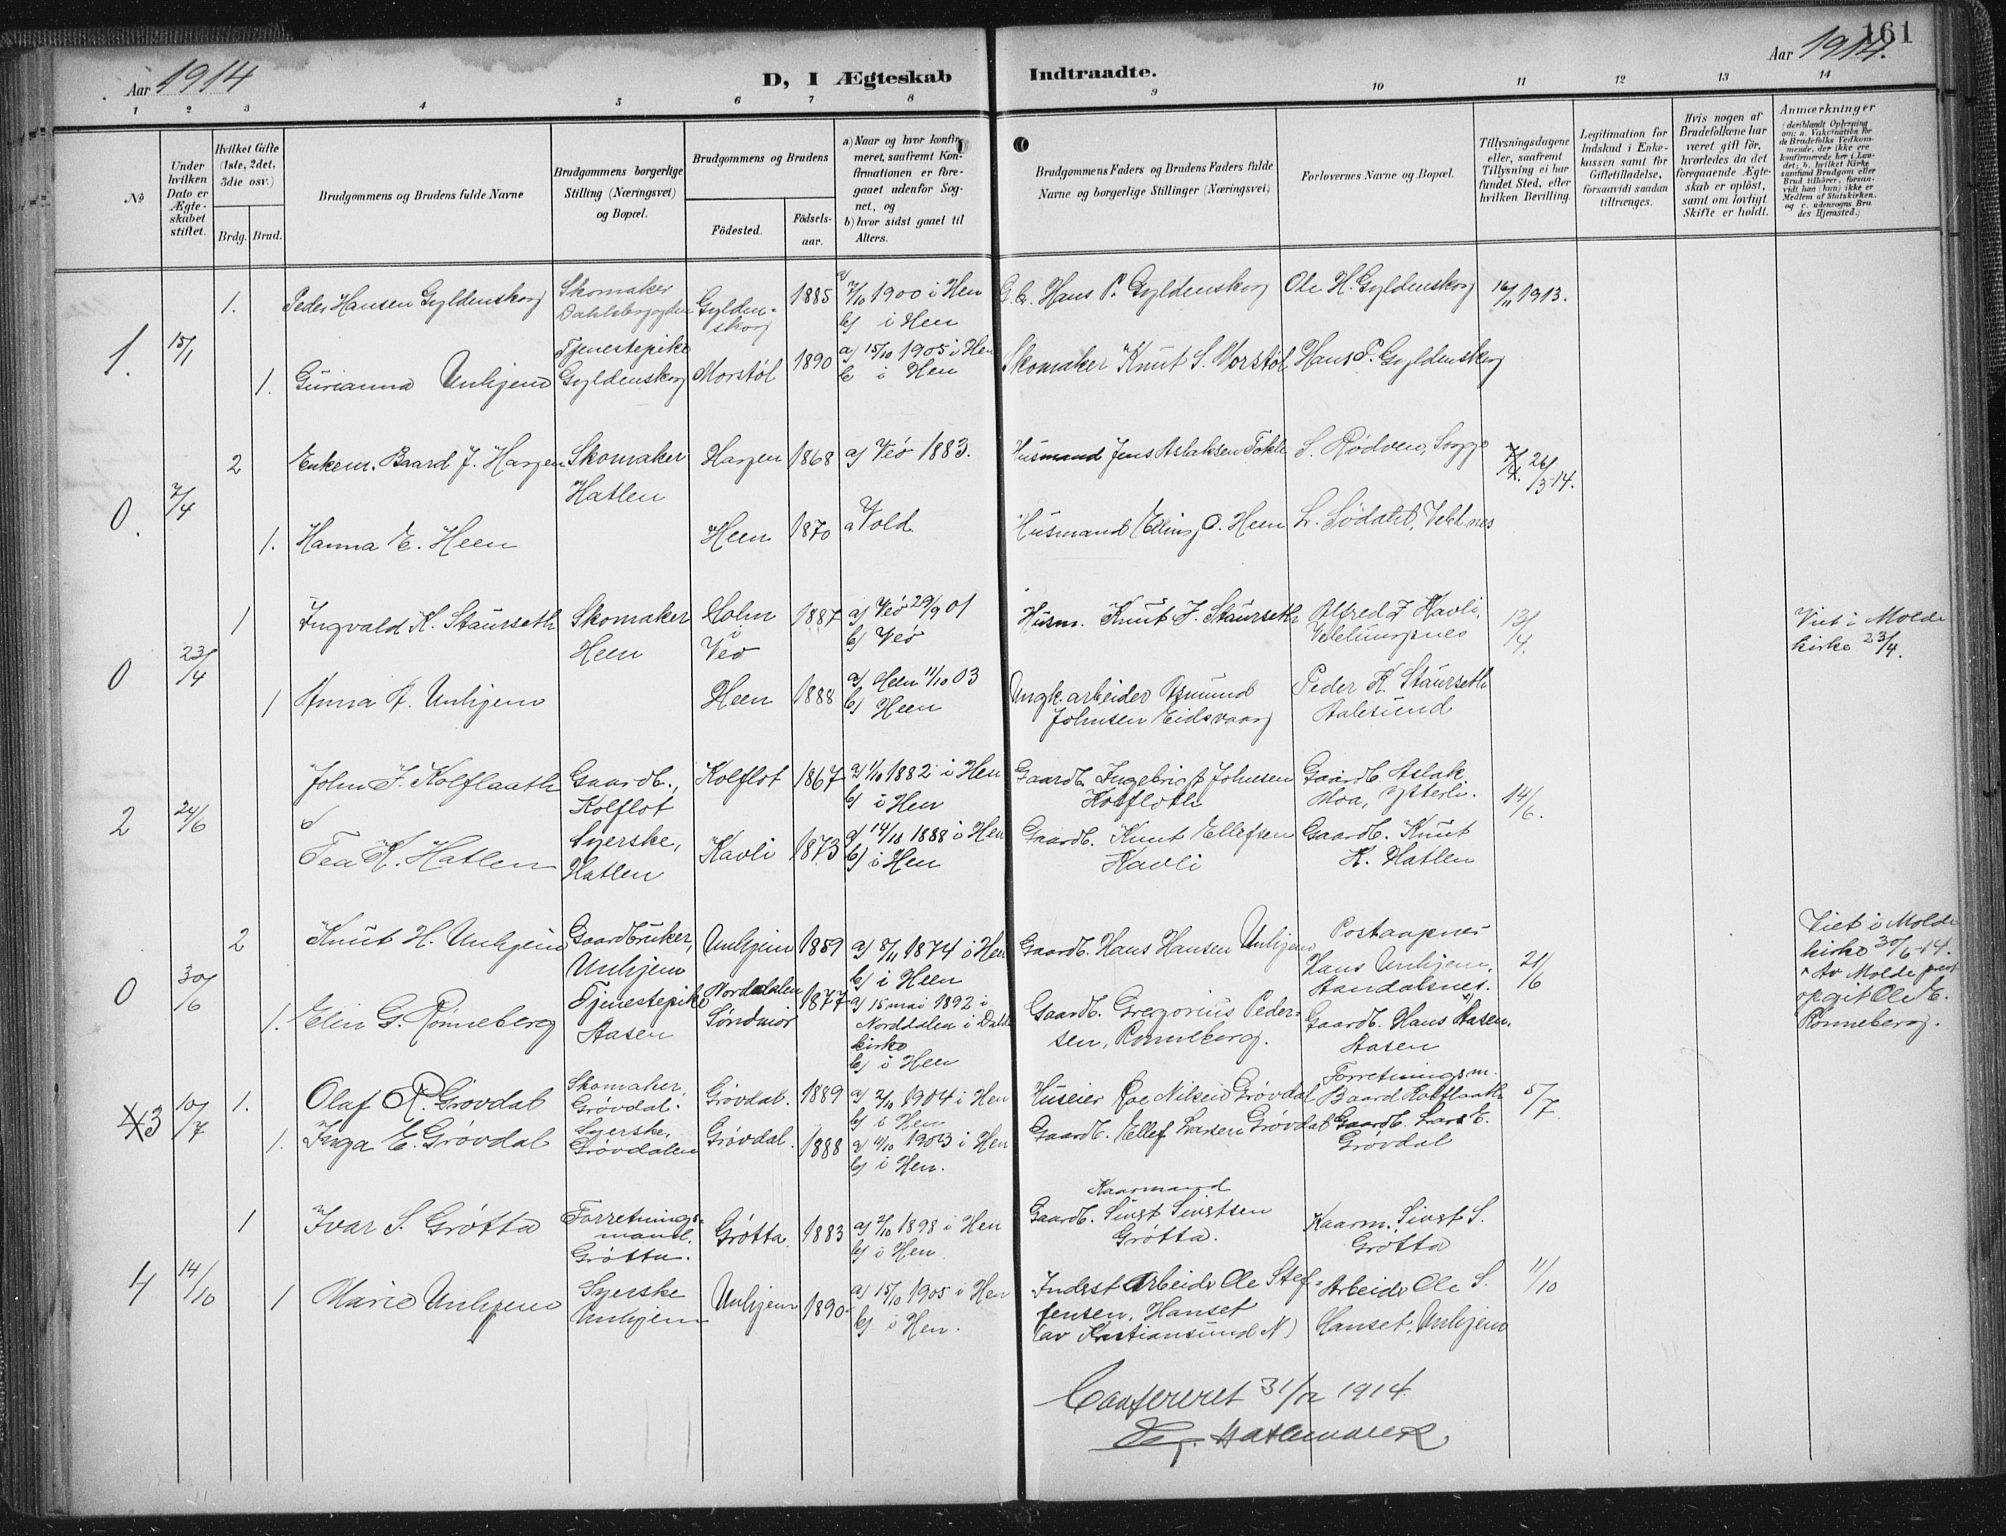 161
Aar 1914
D, I Ægteskab Indtraadte.
Aar 1914.
1 2 3 4 5 6 7 8 9 10 11 12 13 14
No
Under hvilken Dato er Ægteskabet stiftet.
Hvilket Gifte (1ste, 2det, 3die osv.)
Brdg. Brud.
Brudgommens og Brudens fulde Navne
Brudgommens borgerlige Stilling (Næringsvei) og Bopæl.
Brudgommens og Brudens
Födested.
Födsels-aar.
a) Naar og hvor konfirmeret, saafremt Konfirmationen er foregaaet udenfor Sognet, og
b) hvor sidst gaaet til Alters.
Brudgommens Faders og Brudens Faders fulde Navne og borgerlige Stillinger (Næringsvei)
Forlovernes Navne og Bopæl.
Tillysningsdagene eller, saafremt Tillysning ei har fundet Sted, efter hvilken Bevilling.
Legitimation for Indskud i Enkekassen samt for Giftetilladelse, forsaavidt saadan tiltrænges.
Hvis nogen af Brudefolkene har været gift før, hvorledes da det foregaaende Ægteskab er oplöst, samt om lovligt Skifte er holdt.
Anmærkninger
(deriblandt Oplysning om: a. Vakcination for de Brudefolks Vedkommende, der ikke ere konfirmerede her i Landet; b. hvilket Kirkesamfund Brudgom eller Brud tilhörer, forsaavidt han (hun) ikke er Medlem af Statskirken, og c. udensogns Brudes Hjemsted.)
1. 15/1
1. Peder Hansen Gyldenskog Skomaker Dahlsbygden Gyldenskog 1885 a) 7/10 1900 i Hen b) i Hen G.br. Hans P. Gyldenskog Ole H. Gyldenskog 16/11 1913.
1. Gurianna Unhjem Tjenestepike Gyldenskog Morstøl 1890 a) 15/10 1905 i Hen b i Hen Skomaker Knut S. Morstøl Hans P. Gyldenskog
0. 7/4
2 Enkem. Baard J. Hagen Skomaker Hatlen Hagen 1868 a) Veö 1883. Husmand Jens Aslaksen Tokle S. Rödven, Sogge 26/3-14.
1. Hanna E. Heen Heen 1870 a Vold Husmand Elling O. Heen L. Sødahl, Veblnes
0 23/4
1 Ingvald K. Staurseth Skomaker Heen Holm i Veö 1887 a) Veö 29/9 01 b) Veö Husm. Knut J. Staurseth Alfred Z Kavli, Veblungsnes 13/4. Viet i Molde kirke 23/4.
1 Anna A. Unhjem Heen 1888 a) Heen 11/10 03 b) Heen Ungk. arbeider Asmund Johnsen Eidsvaag Peder K. Staurseth Aalesund
2 24/6
John J. Kolflaath Gaardb., Kolflot Kolflot 1867 a) 1/10 1882 i Hen b) i Hen Gaardb. Ingebrigt Johnsen Kolfloth Gaardb. Aslak Moa, Ytterli. 14/6.
Tea K. Hatlen Syerske, Hatlen Kavli 1873 a) 14/10 1888 i Hen b) i Hen Gaardb. Knut Ellefsen Kavli Gaardb. Knut K. Hatlen
0 30/6
2 Knut H. Unhjem Gaardbruker, Unhjem Unhjem 1859 a) 8/11 1874 i Hen b) i Heen Gaardb. Hans Hansen Unhjem Postaapner Hans Unhjem, Aandalsnes. 21/6 Viet i Molde kirke 30/6-14.
1. Elin G. Rönneberg Tjenestepike Aasen Norddalen Söndmör 1877 a) 15 mai 1892 i Norddalen i Dale kirke b) i Heen Gaardb. Gregorius Pedersen, Rønneberg. Gaardb. Hans Aasen, Aasen x Av Molde prest opgit Ole E. Rønneberg.
3 10/7
1. Olaf R. Grøvdal Skomaker, Grøvdal. Grøvdal. 1889 a) 2/10 1904 i Hen b) i Hen Huseier Roe Nilsen Grøvdal Forretningsm. Baard Kolflaath 5/7
1. Inga E. Grøvdal Syerske, Grøvdalen Grøvdal. 1888 a) 4/10 1903 i Hen b) i Hen. Gaardb. Ellef Larsen Grøvdal Gaardb. Lars E. Grøvdal
4 14/10
1 Ivar S. Grøtta Forretningsmand. Grøtta. Grøtta. 1883 a) 2/10 1898 i Hen b) i Hen. Kaarmand Gaardb. Sivst Sivstsen Grøtta. Kaarm. Sivst S. Grøtta 11/10
1 Marie Unhjem Syerske Unhjem Unhjem 1890 a) 15/10 1905 i Hen b) i Hen. Inderst Arbeider Ole Steffensen, Hanset (av Kristiansund N) Arbeider Ole S. Hanset, Unhjem
Confereret 31/12 1914.